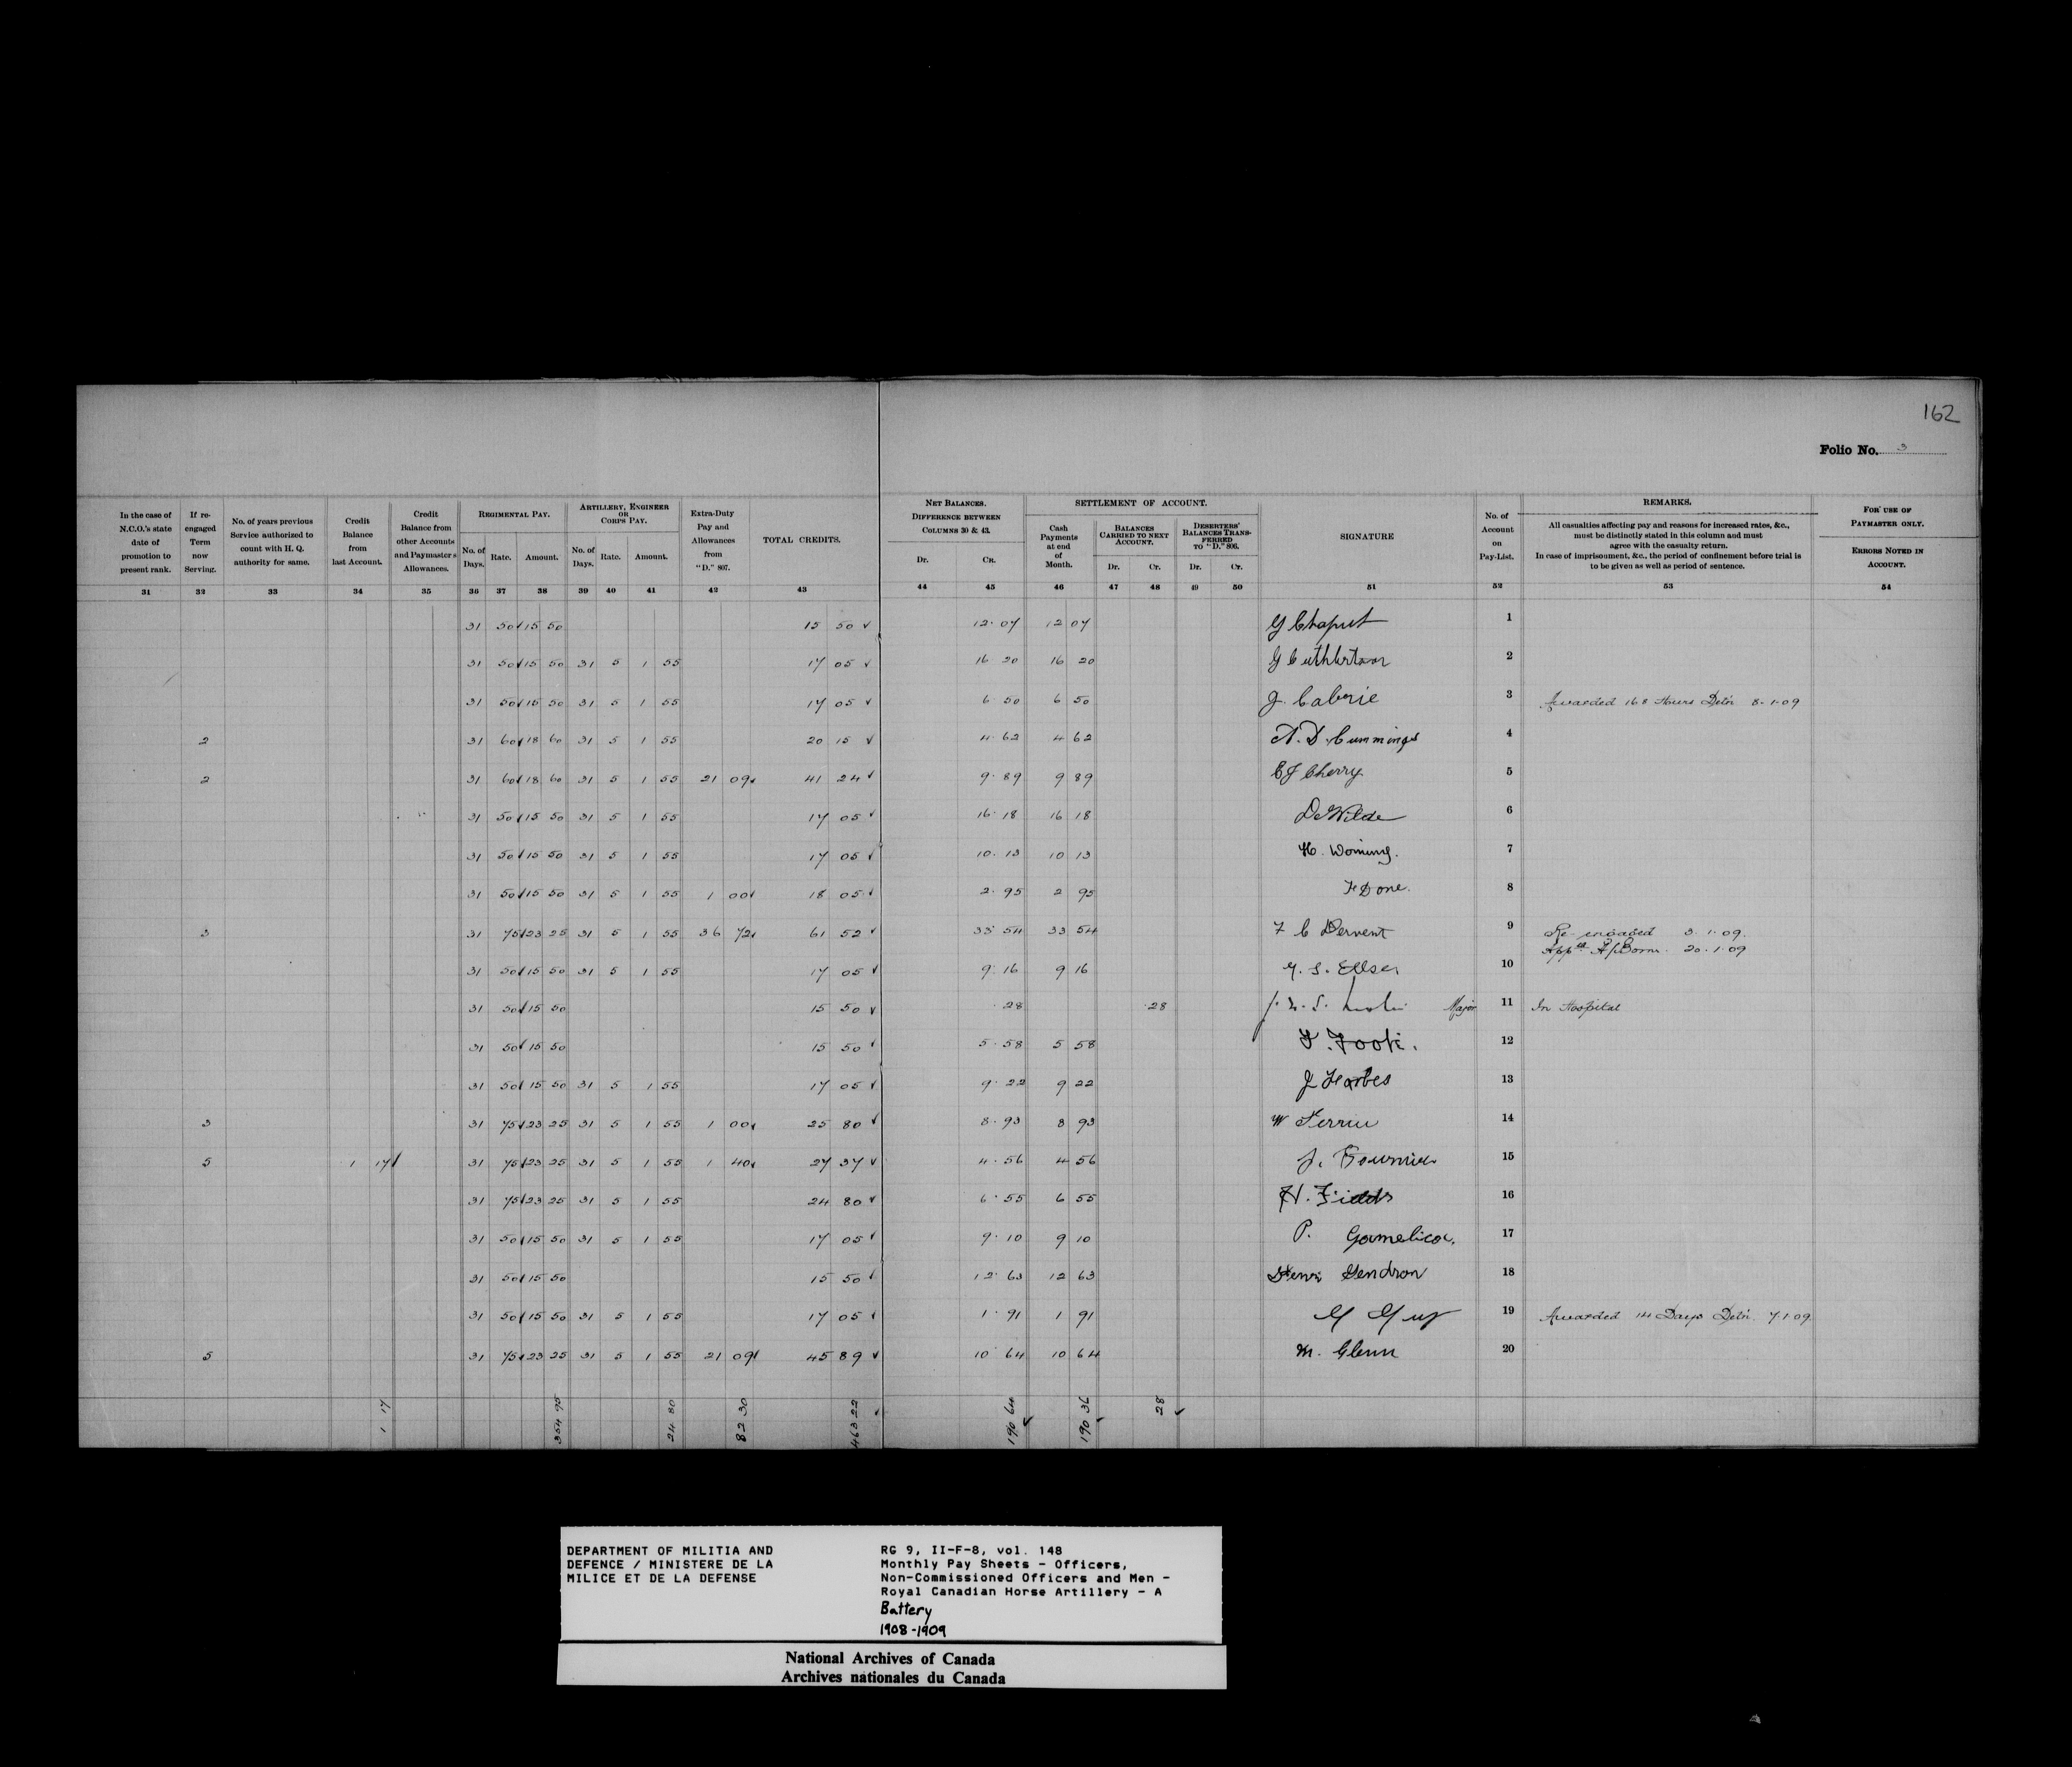 162
Folio No. 3
In the case of N.C.O.'s state date of promotion to present rank.
If re-engaged Term now Serving.
No. of years previous Service authorized to count with H. Q. authority for same.
Credit Balance from last Account.
Credit Balance from other Accounts and Paymaster's Allowances.
REGIMENTAL PAY.
No. of Days. Rate. Amount.
ARTILLERY, ENGINEER OR CORPS PAY.
No. of Days. Rate. Amount.
Extra-Duty Pay and Allowances from "D." 807.
TOTAL CREDITS.
NET BALANCES.
DIFFERENCE BETWEEN COLUMNS 30 & 43.
Dr. Cr.
SETTLEMENT OF ACCOUNT.
Cash Payments at end of Month.
BALANCES CARRIED TO NEXT ACCOUNT.
Dr. Cr.
DESERTERS' BALANCES TRANSFERRED TO "D." 806.
Dr. Cr.
SIGNATURE
No. of Account on Pay-List.
REMARKS.
All casualties affecting pay and reasons for increased rates, &c.,
must be distinctly stated in this column and must
agree with the casualty return.
In case of imprisonment, &c., the period of confinement before trial is
to be given as well as period of sentence.
FOR USE OF PAYMASTER ONLY.
ERRORS NOTED IN ACCOUNT.
31 32 33 34 35 36 37 38 39 40 41 42 43 44 45 46 47 48 49 50 51 52 53 54
31 50 15 50 15 50 12 07 12 07 G Chaput 1
31 50 15 50 31 5 1 55 17 05 16 20 16 20 G Cuthbertson 2
31 50 15 50 31 5 1 55 17 05 6 50 6 50 J. Caberie 3 Awarded 168 Hours Det'n 8-1-09
2 31 60 18 60 31 5 1 55 20 15 4 62 4 62 A. D. Cummings 4
2 31 60 18 60 31 5 1 55 21 09 41 24 9 89 9 89 C J Cherry 5
31 50 15 50 31 5 1 55 17 05 16 18 16 18 DeWilde 6
31 50 15 50 31 5 1 55 17 05 10 13 10 13 H. Worning. 7
31 50 15 50 31 5 1 55 1 00 18 05 2 95 2 95 F Done. 8
3 31 75 23 25 31 5 1 55 36 72 61 52 33 54 33 54 F C Dervent 9 Re-engaged 3.1.09.
App'd A/Bomr. 20.1.09
31 50 15 50 31 5 1 55 17 05 9 16 9 16 G. S. 10
31 50 15 50 15 50 28 28 Major 11 In Hospital
31 50 15 50 15 50 5 58 5 58 F. Fook. 12
31 50 15 50 31 5 1 55 17 05 9 22 9 22 J Forbes 13
3 31 75 23 25 31 5 1 55 1 00 25 80 8 93 8 93 W Perrin 14
5 1 17 31 75 23 25 31 5 1 55 1 40 27 37 4 56 4 56 J. Fournier 15
31 75 23 25 31 5 1 55 24 80 6 55 6 55 H. Fields 16
31 50 15 50 31 5 1 55 17 05 9 10 9 10 P. Gamelica. 17
31 50 15 50 15 50 12 63 12 63 Henri Gendron 18
31 50 15 50 31 5 1 55 17 05 1 91 1 91 G Guy 19 Awarded 14 Days Det'n. 7.1.09
5 31 75 23 25 31 5 1 55 21 09 45 89 10 64 10 64 M. Glenn 20
1 17 354 95 24 80 82 30 463 22 190 64 190 36 28
DEPARTMENT OF MILITIA AND
DEFENCE / MINISTERE DE LA
MILICE ET DE LA DEFENSE
RG 9, II-F-8, vol. 148
Monthly Pay Sheets - Officers,
Non-Commissioned Officers and Men -
Royal Canadian Horse Artillery - A
Battery
1908-1909
National Archives of Canada
Archives nationales du Canada